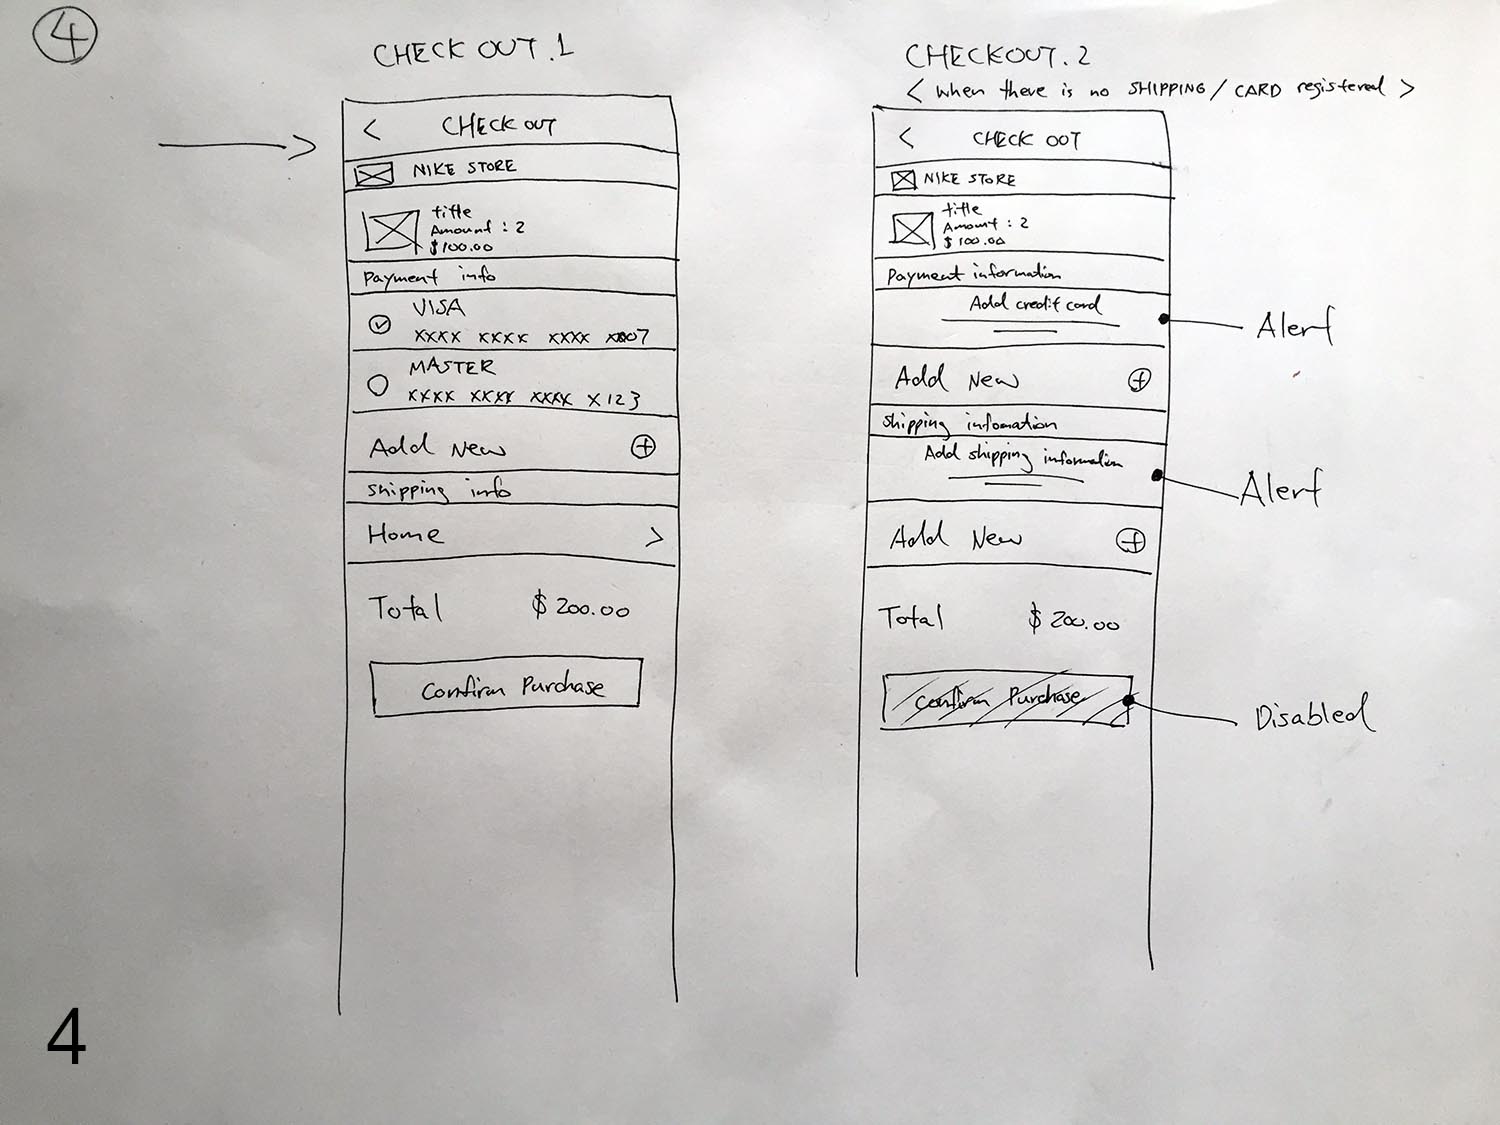 4
CHECK OUT.1
< CHECK OUT
NIKE STORE
title
Amount : 2
$100.00
Payment info
VISA
xxxx xxxx xxxx xx07
MASTER
xxxx xxxx xxxx x123
Add New +
shipping info
Home >
Total $200.00
Confirm Purchase
CHECKOUT.2
< when there is no SHIPPING / CARD registered >
< CHECK OUT
NIKE STORE
title
Amount : 2
$100.00
Payment information
Add credit card
Alert
Add New +
shipping infomation
Add shipping information
Alert
Add New +
Total $200.00
Confirm Purchase
Disabled
4